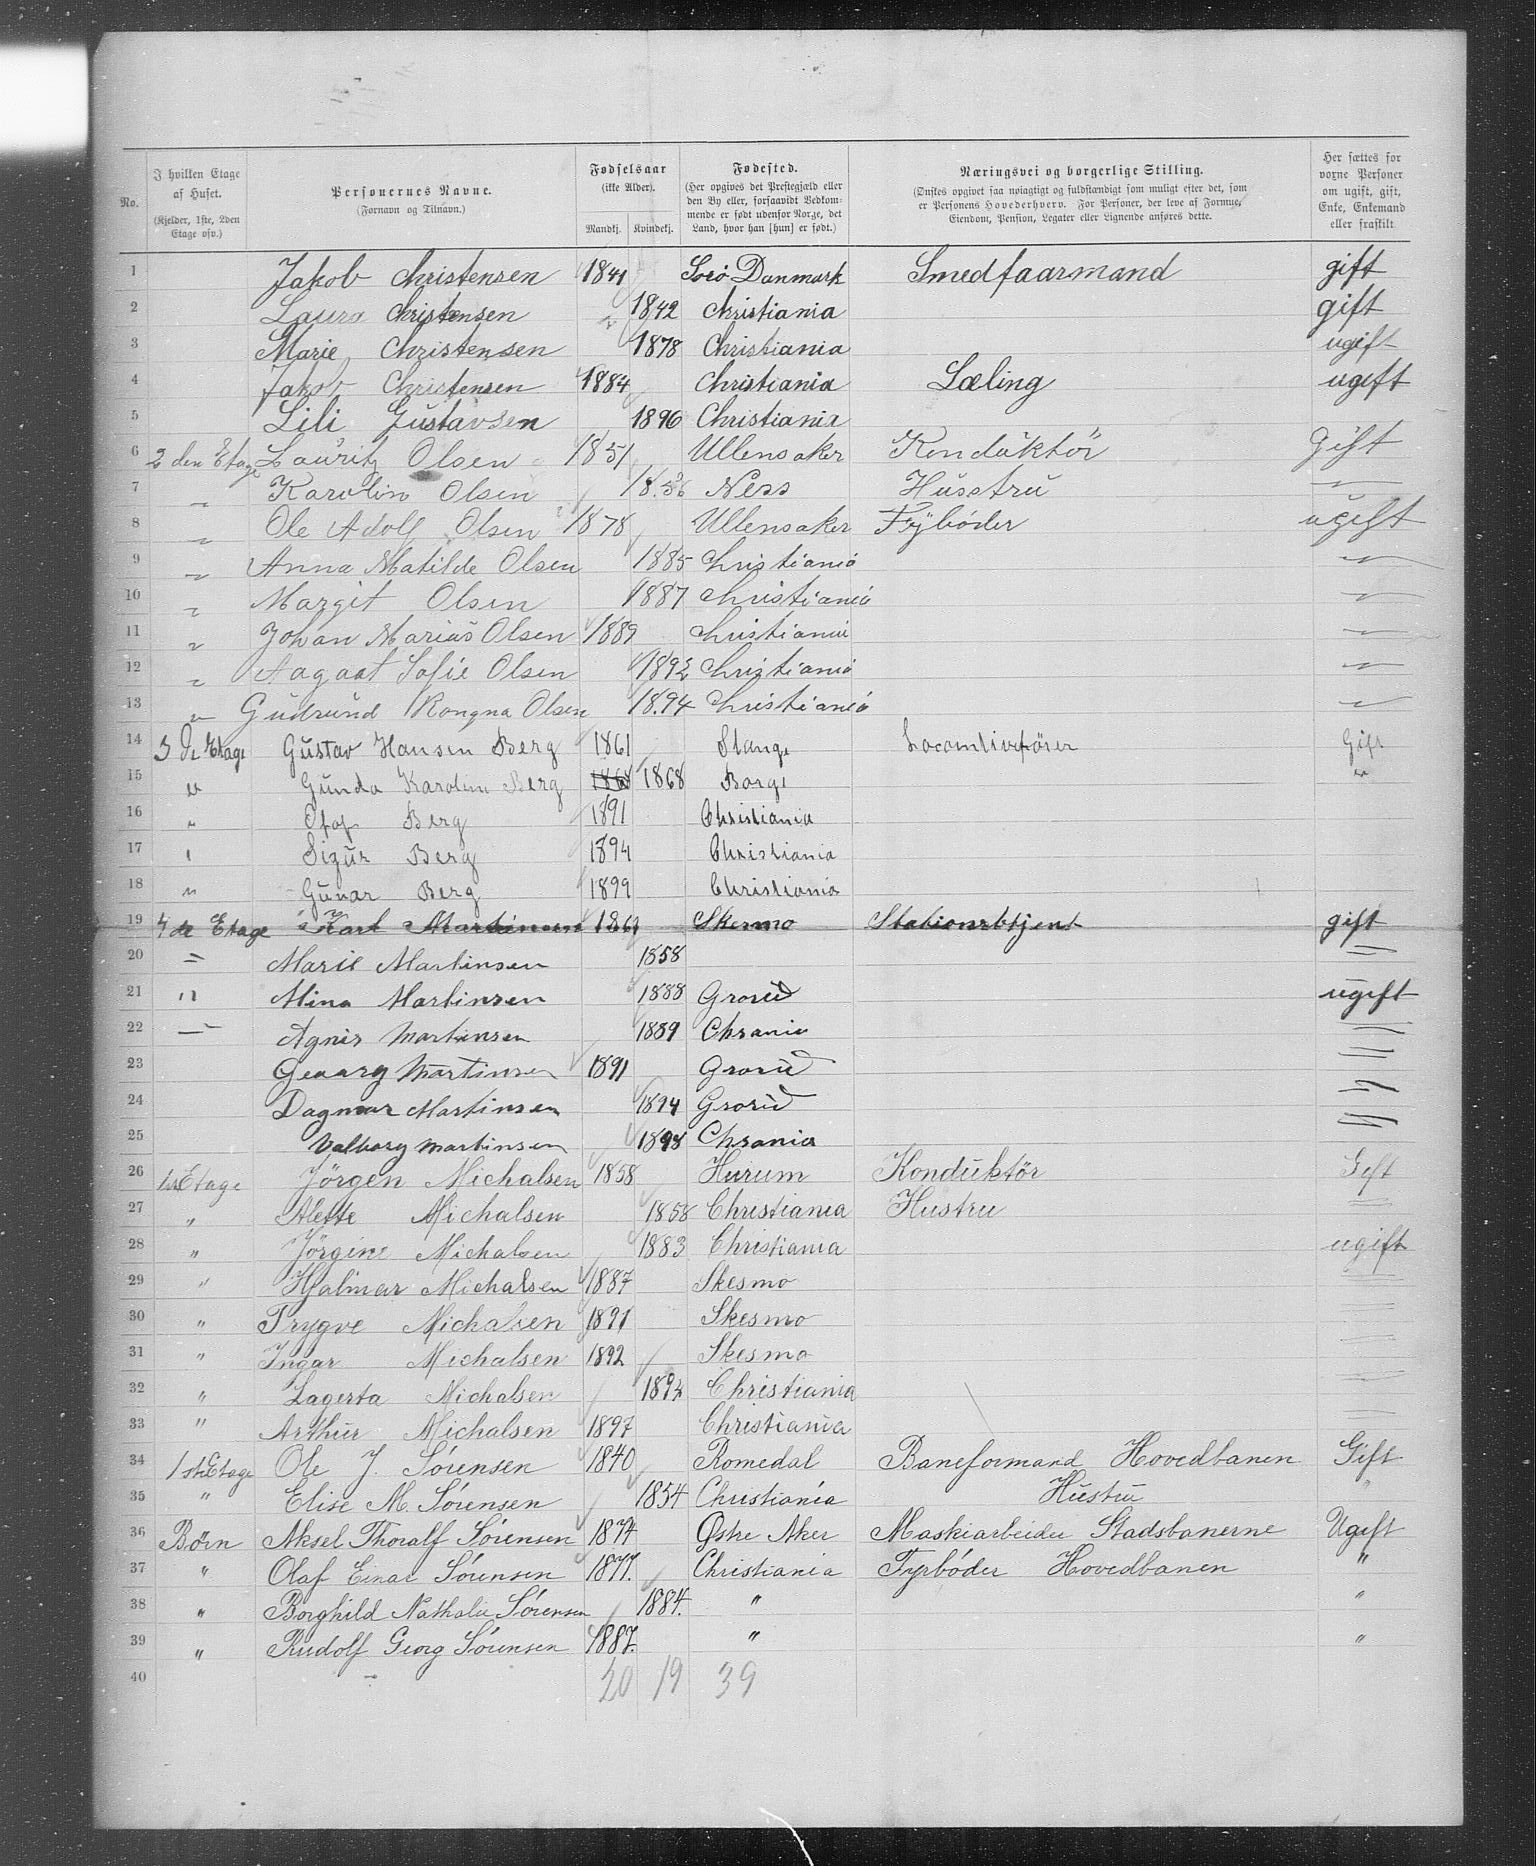 No. I hvilken Etage af Huset. (Kjelder, 1ste, 2den Etage osv.) Personernes Navne. (Fornavn og Tilnavn.) Fødselsaar (ikke Alder). Mandkj. Kvindekj. Fødested. (Her opgives det Prestegjæld eller den By eller, forsaavidt Vedkommende er født udenfor Norge, det Land, hvor han [hun] er født.) Næringsvei og borgerlige Stilling. (Ønskes opgivet saa nøiagtigt og fuldstændigt som muligt efter det, som er Personens Hovederhverv. For Personer, der leve af Formue, Eiendom, Pension, Legater eller Lignende anføres dette. Her sættes for voxne Personer om ugift, gift, Enke, Enkemand eller fraskilt
1 Jakob Christensen 1841 Sorö Danmark Smedfaarmand gift
2 Laura Christensen 1842 Christiania gift
3 Marie Christensen 1878 Christiania ugift
4 Jakob Christensen 1884 Christiania Læling ugift
5 Lili Gustavsen 1896 Christiania
6 2 den Etage Lauritz Olsen 1851 Ullensaker Konduktör Gift
7 " Karolin Olsen 18.56 Ness Husstru "
8 " Ole Adolf Olsen 1878 Ullensaker Fyböder ugift
9 " Anna Matilde Olsen 1885 Christiania "
10 " Margit Olsen 1887 Christiania "
11 " Johan Marius Olsen 1889 Christiania "
12 " Aagaat Sofie Olsen 1892 Christiania "
13 " Gudrund Rongna Olsen 18.94 Christiania "
14 3 de Etage Gustav Hansen Berg 1861 Stange Locomtivförer Gift
15 " Gunda Karoline Berg 1868 1868 Borge "
16 " Olaf Berg 1891 Christiania
17 " Sigur Berg 1894 Christiania
18 " Gunar Berg 1899 Christiania
19 4 de Etage Karl Martinsen 1861 Skesmo Stationsbtjent gift
20 " Marie Martinsen 1858 "
21 " Mina Martinsen 1888 Grorud ugift
22 " Agnes Martinsen 1889 Chrania "
23 Georg Martinsen 1891 Grorud "
24 Dagmar Martinsen 1894 Grorud "
25 Valborg Martinsen 1898 Chrania "
26 1st Etage Jörgen Michalsen 1858 Hurum Konduktör Gift
27 " Alette Michalsen 1858 Christiania Hustru "
28 " Jörgine Michalsen 1883 Christiania ugift
29 " Hjalmar Michalsen 1887 Skesmo "
30 " Trygve Michalsen 1891 Skesmo "
31 " Ingar Michalsen 1892 Skesmo "
32 " Lagerta Michalsen 1894 Christiania "
33 " Arthur Michalsen 1897 Christiania "
34 1 ste Etage Ole J. Sörensen 1840 Romedal Baneformand Hovedbanen Gift
35 " Elise M. Sörensen 1854 Christiania Hustru "
36 Börn Aksel Thoralf Sörensen 1874 Østre Aker Maskiarbeider Stadsbanerne Ugift
37 " Olaf Einar Sörensen 1877. Christiania Fyrböder Hovedbanen "
38 " Borghild Nathalie Sörensen 1884. " "
39 " Rudolf Georg Sörensen 1887. " "
40 20 19 39